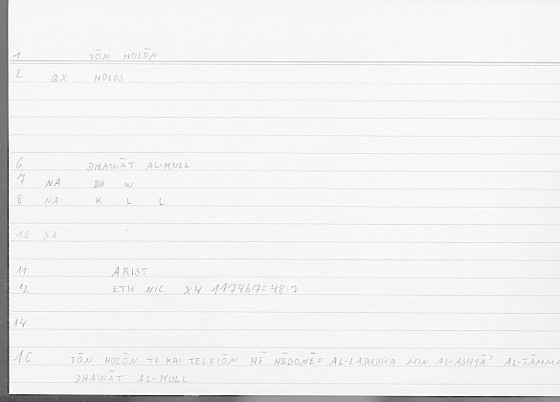 1 TŌN HOLŌN
2 QX HOLOS
6 DHAWĀT AL-KULL
7 NA DH W
8 NA K L L
10
11 ARIST
12 ETH NIC X4 1174b7=48.2
14
16 TŌN HOLŌN TI KAI TELEIŌN HĒ HĒDONĒ= AL-LADHDHA MIN AL-ASHYĀʾ AL-TĀMMA
DHAWĀT AL-KULL